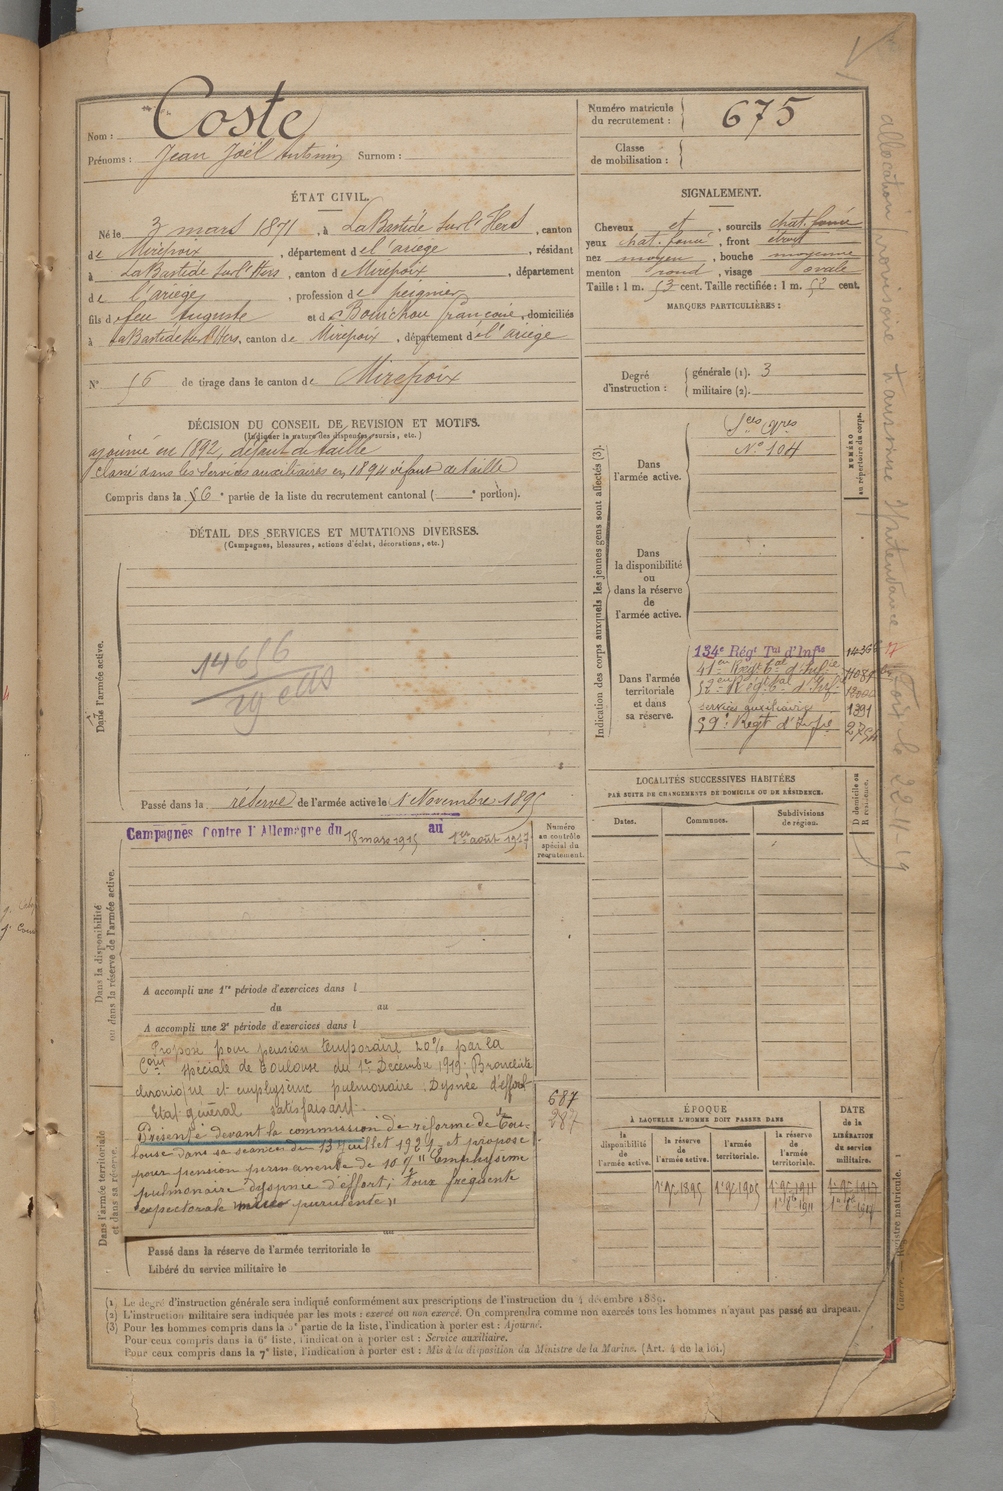 Nom : Coste
Prénoms : Jean Joël Antonin Surnom :
Numéro matricule du recrutement : 675
Classe de mobilisation :
ÉTAT CIVIL.
Né le 3 mars 1871, à LaBastide sur l'Hers, canton
de Mirepoix, département de l'ariège, résidant
à LaBastide sur l'Hers, canton de Mirepoix, département
de l'ariège, profession de peignier
fils de feu Auguste et de Bourichou françoise, domiciliés
à LaBastide sur l'Hers, canton de Mirepoix, département de l'ariège
N° 56 de tirage dans le canton de Mirepoix
SIGNALEMENT.
Cheveux et, sourcils chat. foncé
yeux chat. foncé, front étroit
nez moyen, bouche moyenne
menton rond, visage ovale
Taille : 1 m. 53 cent. Taille rectifiée : 1 m. 52 cent.
MARQUES PARTICULIÈRES :
Degré d'instruction : générale (1). 3
militaire (2).
DÉCISION DU CONSEIL DE REVISION ET MOTIFS.
(Indiquer la nature des dispenses, sursis, etc.)
ajourné en 1892, défaut de taille
Classé dans les services auxiliaires en 1894 défaut de taille
Compris dans la 6e partie de la liste du recrutement cantonal ( e portion).
DÉTAIL DES SERVICES ET MUTATIONS DIVERSES.
(Campagnes, blessures, actions d'éclat, décorations, etc.)
Dans l'armée active.
14656
Passé dans la réserve de l'armée active le 1er Novembre 1895
Indication des corps auxquels les jeunes gens sont affectés (3).
NUMÉRO au répertoire du corps.
Dans l'armée active.
N° 104
Dans la disponibilité ou dans la réserve de l'armée active.
Dans l'armée territoriale et dans sa réserve.
134e Régt Tal d'Infie
services auxiliaires 1391
59e Regt d'Infie
LOCALITÉS SUCCESSIVES HABITÉES
PAR SUITE DE CHANGEMENTS DE DOMICILE OU DE RÉSIDENCE.
Dates. Communes. Subdivisions de région. D domicile ou R résidence.
Dans la disponibilité ou dans la réserve de l'armée active.
Campagnes Contre l'Allemagne du 18 mars 1915 au 1er août 1917
Numéro au contrôle spécial du recrutement.
A accompli une 1re période d'exercices dans l
du au
A accompli une 2e période d'exercices dans l
Dans l'armée territoriale et dans sa réserve.
Proposé pour pension temporaire 20% par la
Con spéciale de Toulouse du 1er Decembre 1919. Bronchite
chronique et emphysème pulmonaire. Dysnée d'effort
Etat général satisfaisant.
Présenté devant la commission de réforme de Tou-
louse dans sa séance du 13 Juillet 1921, et proposé
pour pension permanente de 10% "Emphysème
pulmonaire dyspnée d'effort; toux fréquente
expectorale purulente"
687
287
Passé dans la réserve de l'armée territoriale le
Libéré du service militaire le
ÉPOQUE
À LAQUELLE L'HOMME DOIT PASSER DANS
la disponibilité de l'armée active. la réserve de l'armée active. l'armée territoriale. la réserve de l'armée territoriale.
DATE de la LIBÉRATION du service militaire.
(1) Le degré d'instruction générale sera indiqué conformément aux prescriptions de l'instruction du 4 décembre 1889.
(2) L'instruction militaire sera indiquée par les mots : exercé ou non exercé. On comprendra comme non exercés tous les hommes n'ayant pas passé au drapeau.
(3) Pour les hommes compris dans la 5e partie de la liste, l'indication à porter est : Ajourné.
Pour ceux compris dans la 6e liste, l'indication à porter est : Service auxiliaire.
Pour ceux compris dans la 7e liste, l'indication à porter est : Mis à la disposition du Ministre de la Marine. (Art. 4 de la loi.)
allocation provisoire transmise Intendance Foix le 22-11-19
Registre matricule.